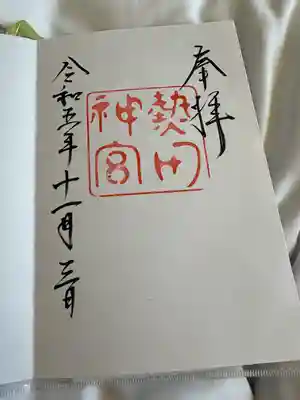 奉拝
熱田
神宮
令和五年十一月三日